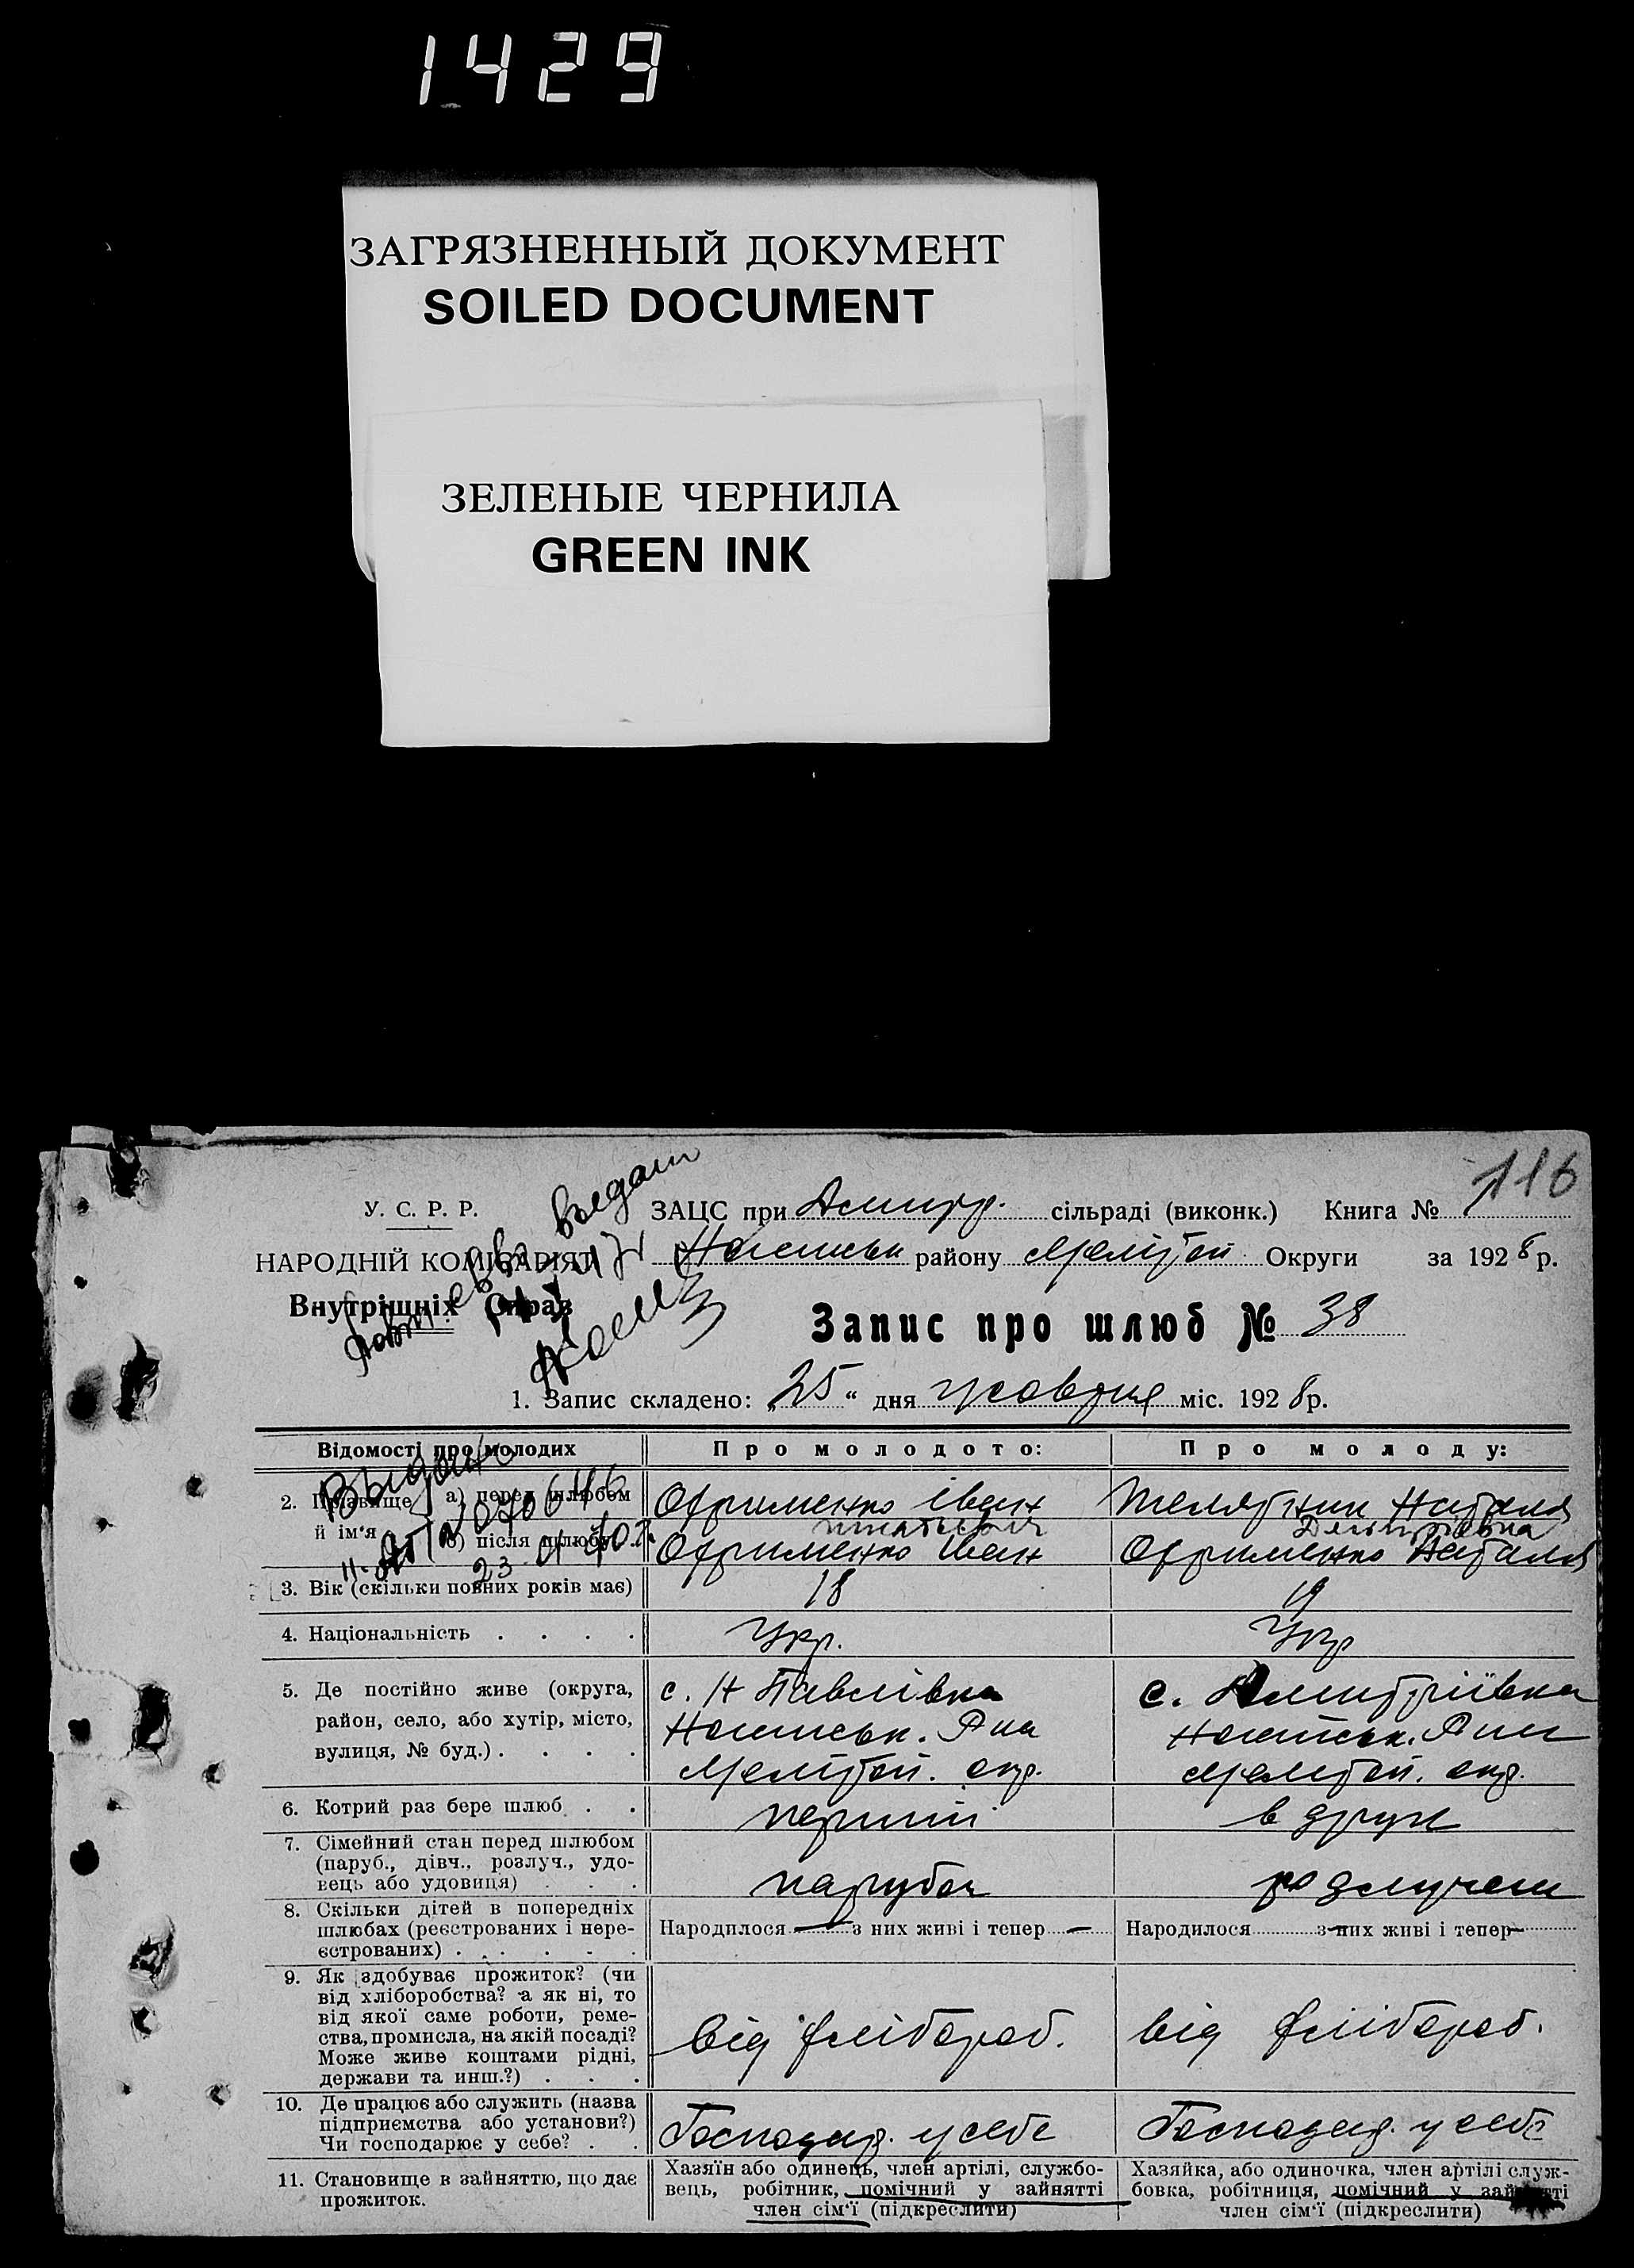 1429
ЗАГРЯЗНЕННЫЙ ДОКУМЕНТ
SOILED DOCUMENT
ЗЕЛЕНЫЕ ЧЕРНИЛА
GREEN INK
116
У. С. Р. Р.
ЗАЦС при Дмитр. сільраді (виконк.) Книга №
НАРОДНІЙ КОМІСАРІЯТ
району Мелітоп. Округи за 1928 р.
Внутрішніх Справ
Запис про шлюб № 38
1. Запис складено: „25“ дня жовтня міс. 1928 р.
Відомості про молодих
Про молодого:
Про молоду:
2. Прізвище й ім'я
а) перед шлюбом
Охрименко Іван
Наталя
б) після шлюбу
Игнатович
Дмитрієвна
Охрименко Іван
Охрименко Наталя
3. Вік (скільки повних років має)
18
19
4. Національність . . . .
Укр.
Укр
5. Де постійно живе (округа,
район, село, або хутір, місто,
вулиця, № буд.) . . . .
с. Н Павлівка
Р-на
Мелітоп. окр.
с. Дмитріївка
Р-на
Мелітоп. окр.
6. Котрий раз бере шлюб . .
перший
в друге
7. Сімейний стан перед шлюбом
(паруб., дівч., розлуч., удо-
вець або удовиця) . . .
парубок
розлучен
8. Скільки дітей в попередніх
шлюбах (реєстрованих і нере-
єстрованих) . . . . . .
Народилося — з них живі і тепер —
Народилося з них живі і тепер —
9. Як здобуває прожиток? (чи
від хліборобства? а як ні, то
від якої саме роботи, реме-
ства, промисла, на якій посаді?
Може живе коштами рідні,
держави та инш.?) . . .
від хлібороб.
від хлібороб.
10. Де працює або служить (назва
підприємства або установи?)
Чи господарює у себе? . .
Господар. у себе
Господар. у себе
11. Становище в зайняттю, що дає
прожиток.
Хазяїн або одинець, член артілі, службо-
вець, робітник, помічний у зайнятті
член сім'ї (підкреслити)
Хазяйка, або одиночка, член артілі служ-
бовка, робітниця, помічний у зайнятті
член сім'ї (підкреслити)